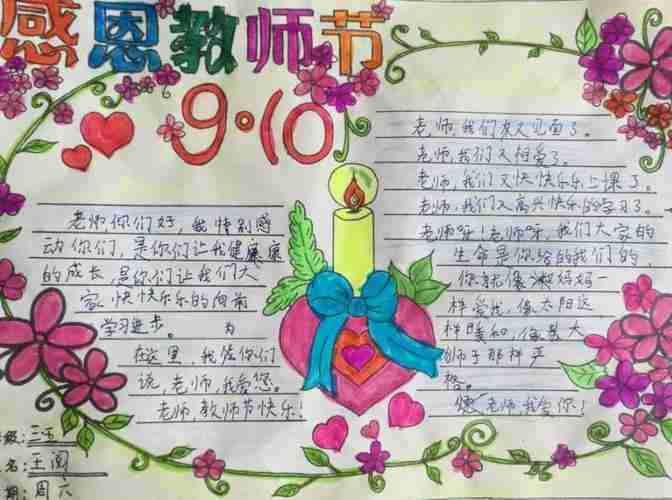 感恩教师节
9·10
老师你们好,我特别感
动你们,是你们让我健康康
的成长,是你们让我们大
家快快乐乐的向前
学习进步。 为
在这里,我代你们
说,老师,我爱您。
老师,教师节快乐!
老师,我们友又见面了。
老师,我们又相爱了。
老师,我们又快快乐乐上课了。
老师,我们又高兴快乐的学习了。
老师呀!老师呀,我们大家的
生命是你给的我们的
你就像妈妈一
样爱我,像太阳远
样暖和,像大
狮子那样严
格。
老师,我爱你!
级:三五
名:王阁
期:周六